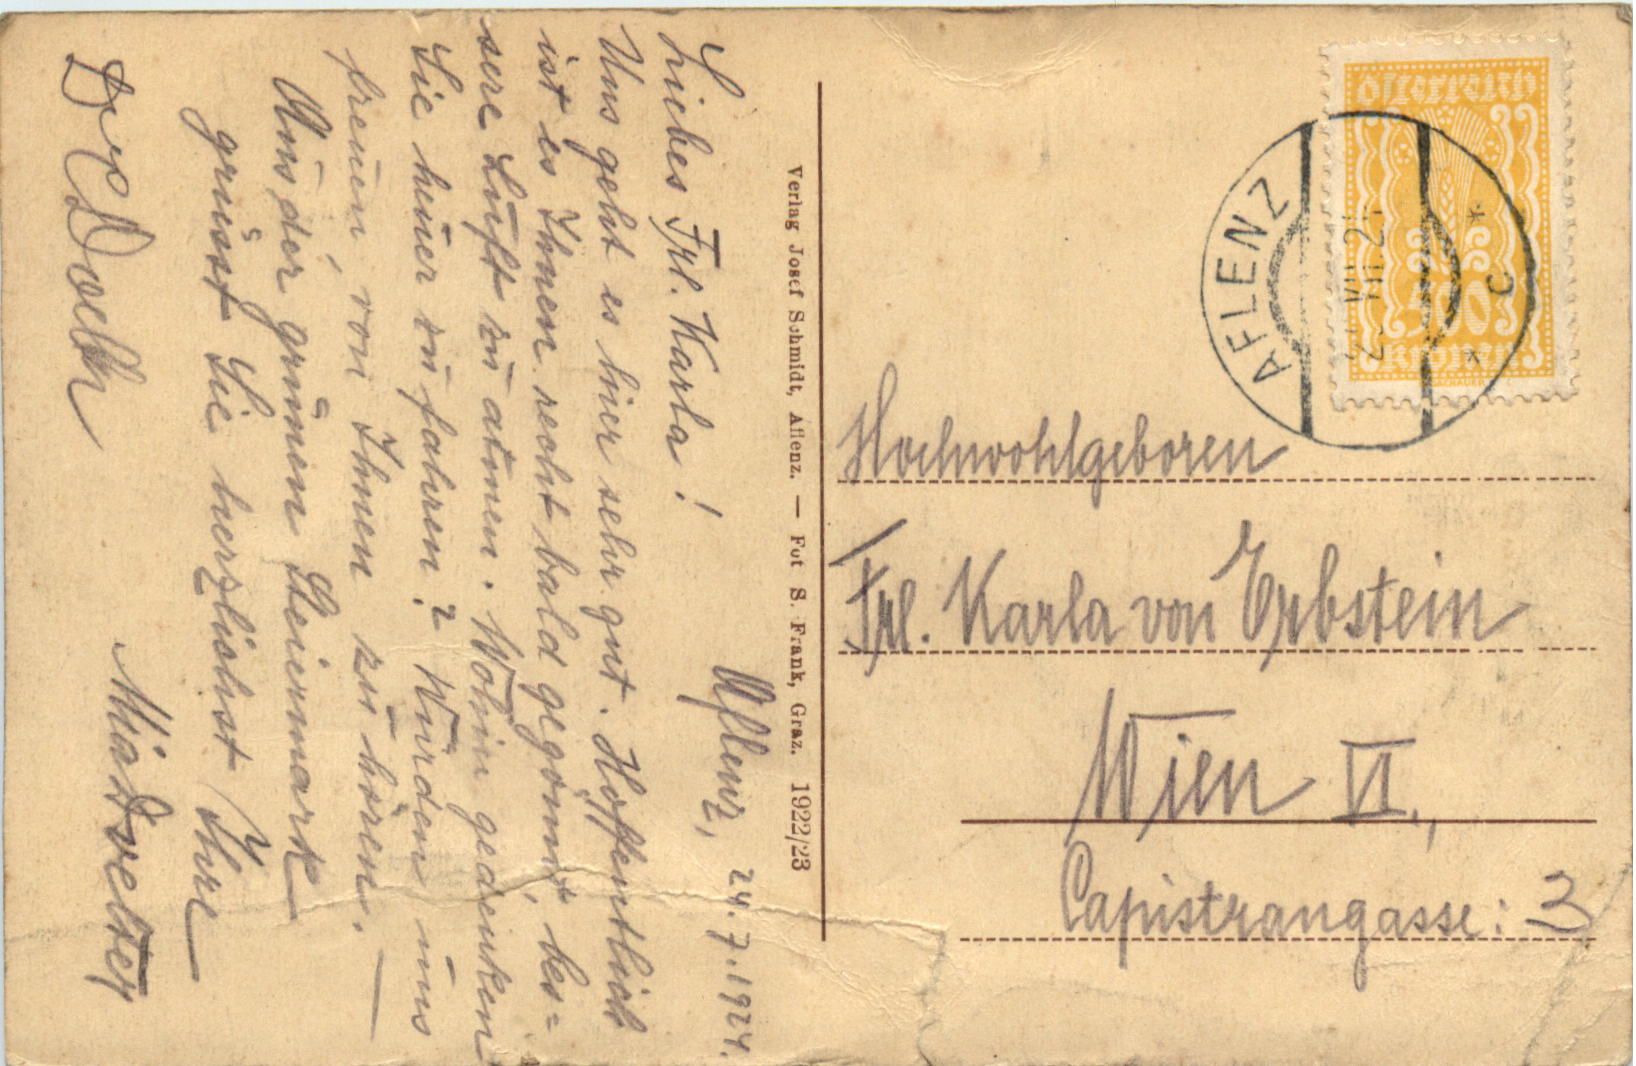 Aflenz, 24.7.1924.
Liebes Frl. Karla!
Uns geht es hier sehr gut. Hoffentlich
ist es Ihnen recht bald gegönnt, bes=
sere Luft zu atmen. Wohin gedenken
Sie heuer zu fahren? Würden uns
freuen, von Ihnen zu hören. —
Aus der grünen Steiermark
grüsst Sie herzlichst Ihre
Verlag Josef Schmidt, Aflenz. — Fot S. Frank, Graz. 1922/23
Österreich
400
Kronen
AFLENZ
* c *
Hochwohlgeboren
Frl. Karla von Erbstein
Wien VI.,
Capistrangasse: 3